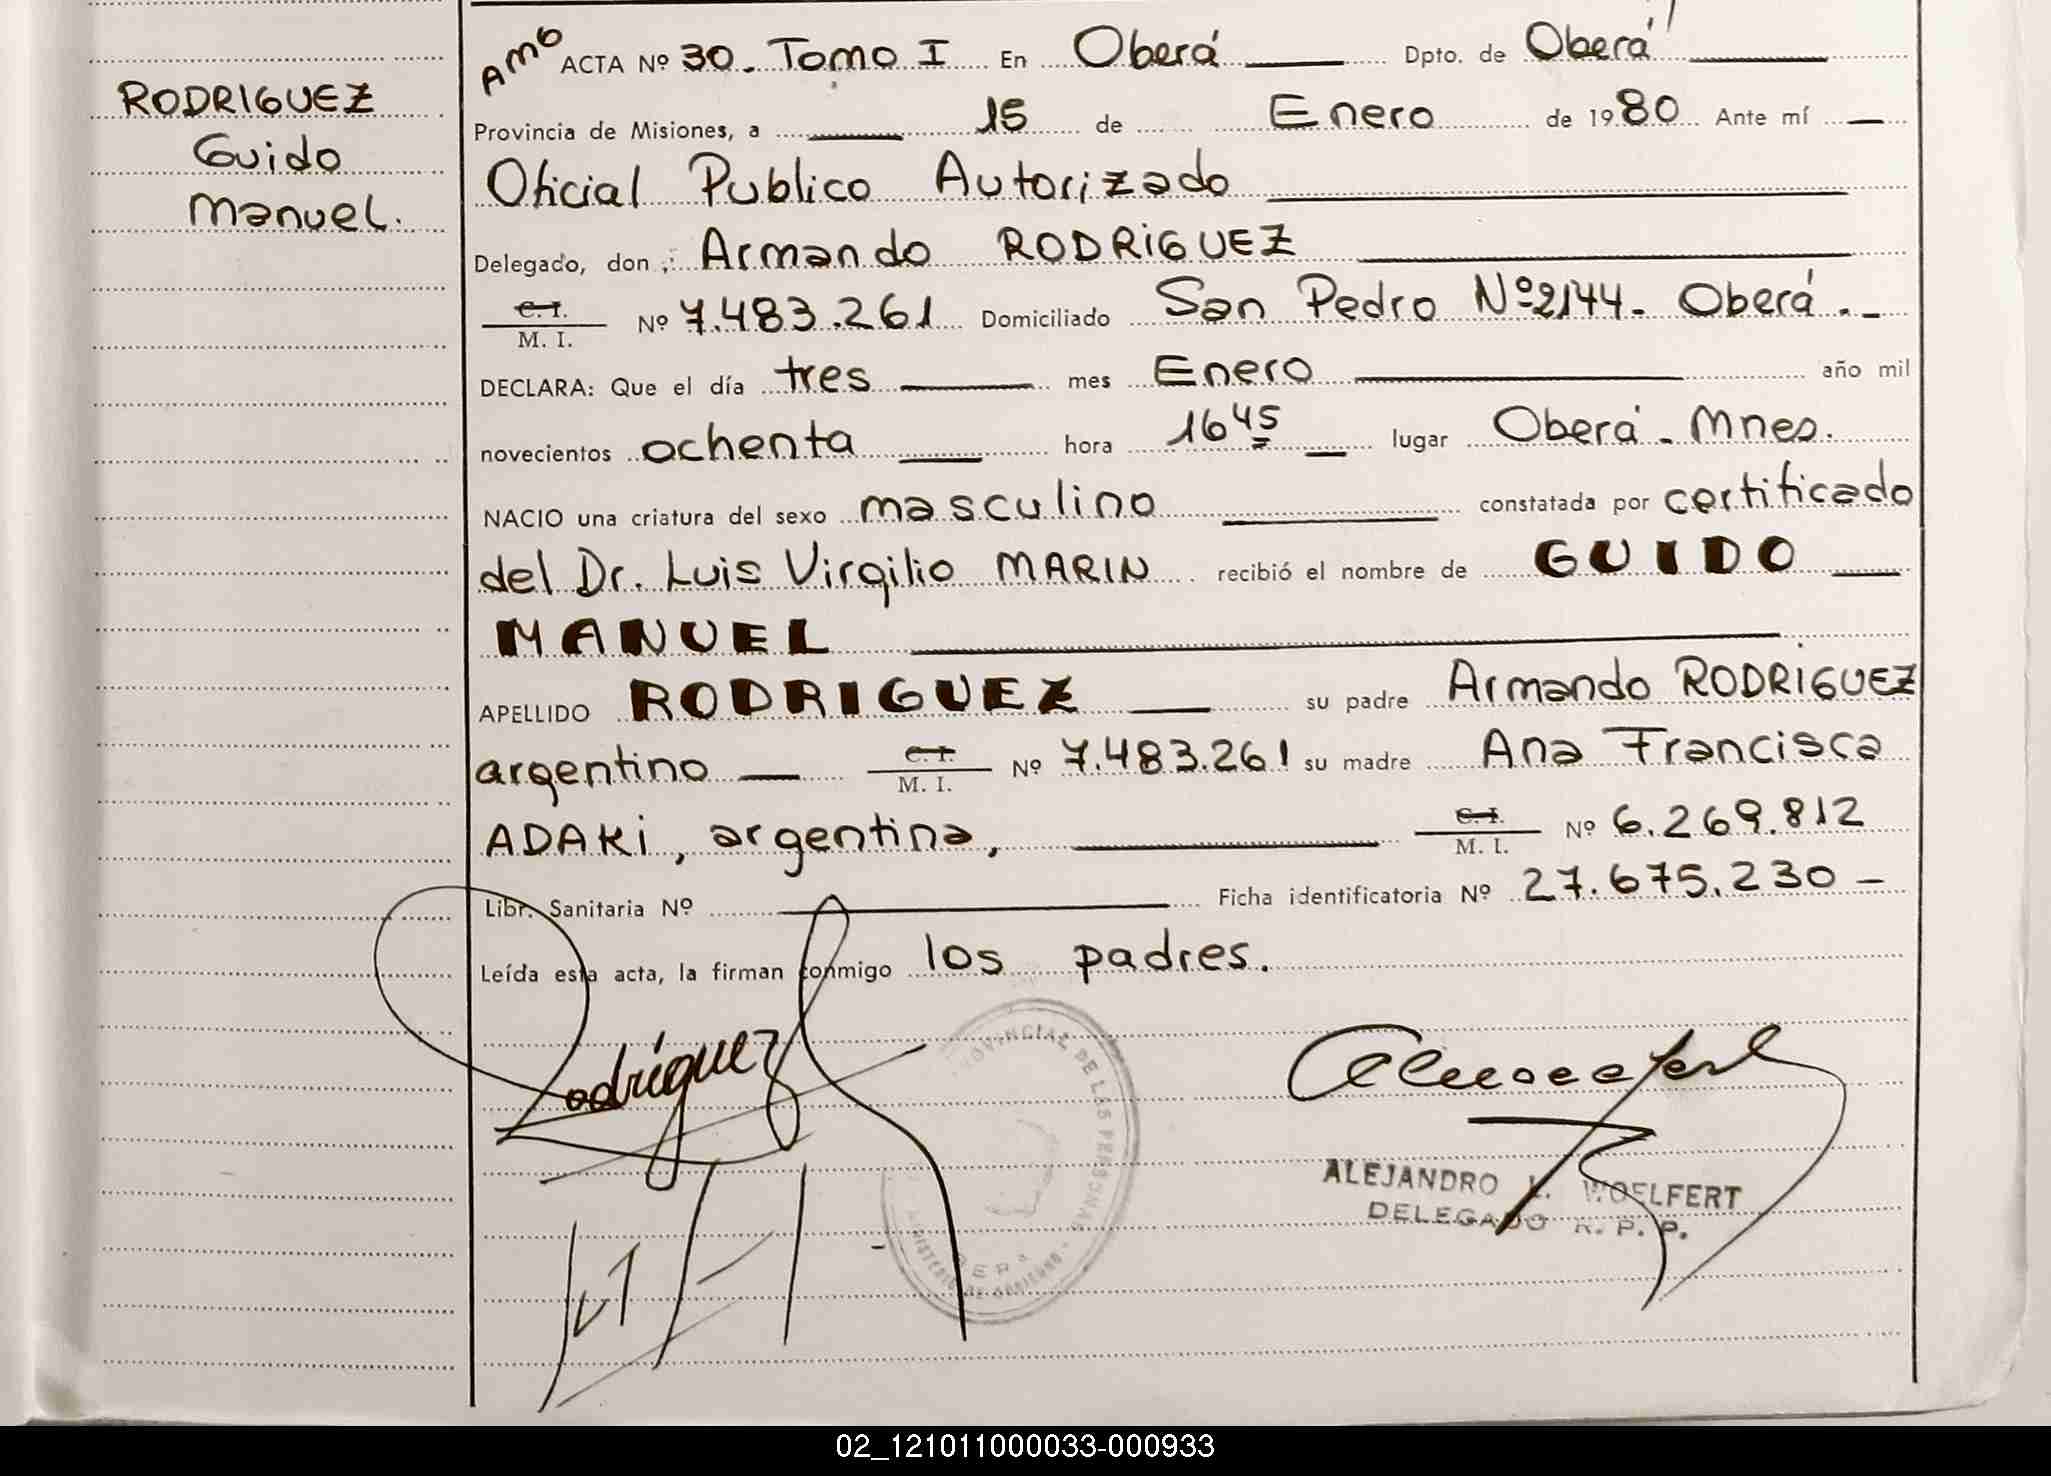 RODRIGUEZ
Guido
Manuel.
Amo ACTA Nº 30. Tomo I En Oberá Dpto. de Oberá
Provincia de Misiones, a 15 de Enero de 1980 Ante mí
Oficial Publico Autorizado
Delegado, don: Armando RODRiGUEZ
C. I. M. I. Nº 7.483.261 Domiciliado San Pedro Nº2144. Oberá.-
DECLARA: Que el día tres mes Enero año mil
novecientos ochenta hora 16 45 lugar Oberá - Mnes.
NACIO una criatura del sexo masculino constatada por certificado
del Dr. Luis Virgilio MARIN recibió el nombre de GUIDO
MANUEL
APELLIDO RODRIGUEZ su padre Armando RODRiGUEZ
argentino C. I. M. I. Nº 7.483.261 su madre Ana Francisca
ADAKi, argentina, C. I. M. I. Nº 6.269.812
Libr. Sanitaria Nº Ficha identificatoria Nº 27.675.230 -
Leída esta acta, la firman conmigo los padres.
Rodríguez
PROVINCIAL DE LAS PERSONAS
MINISTERIO DE GOBIERNO
ALEJANDRO L. WOELFERT
DELEGADO R. P. P.
02_121011000033-000933